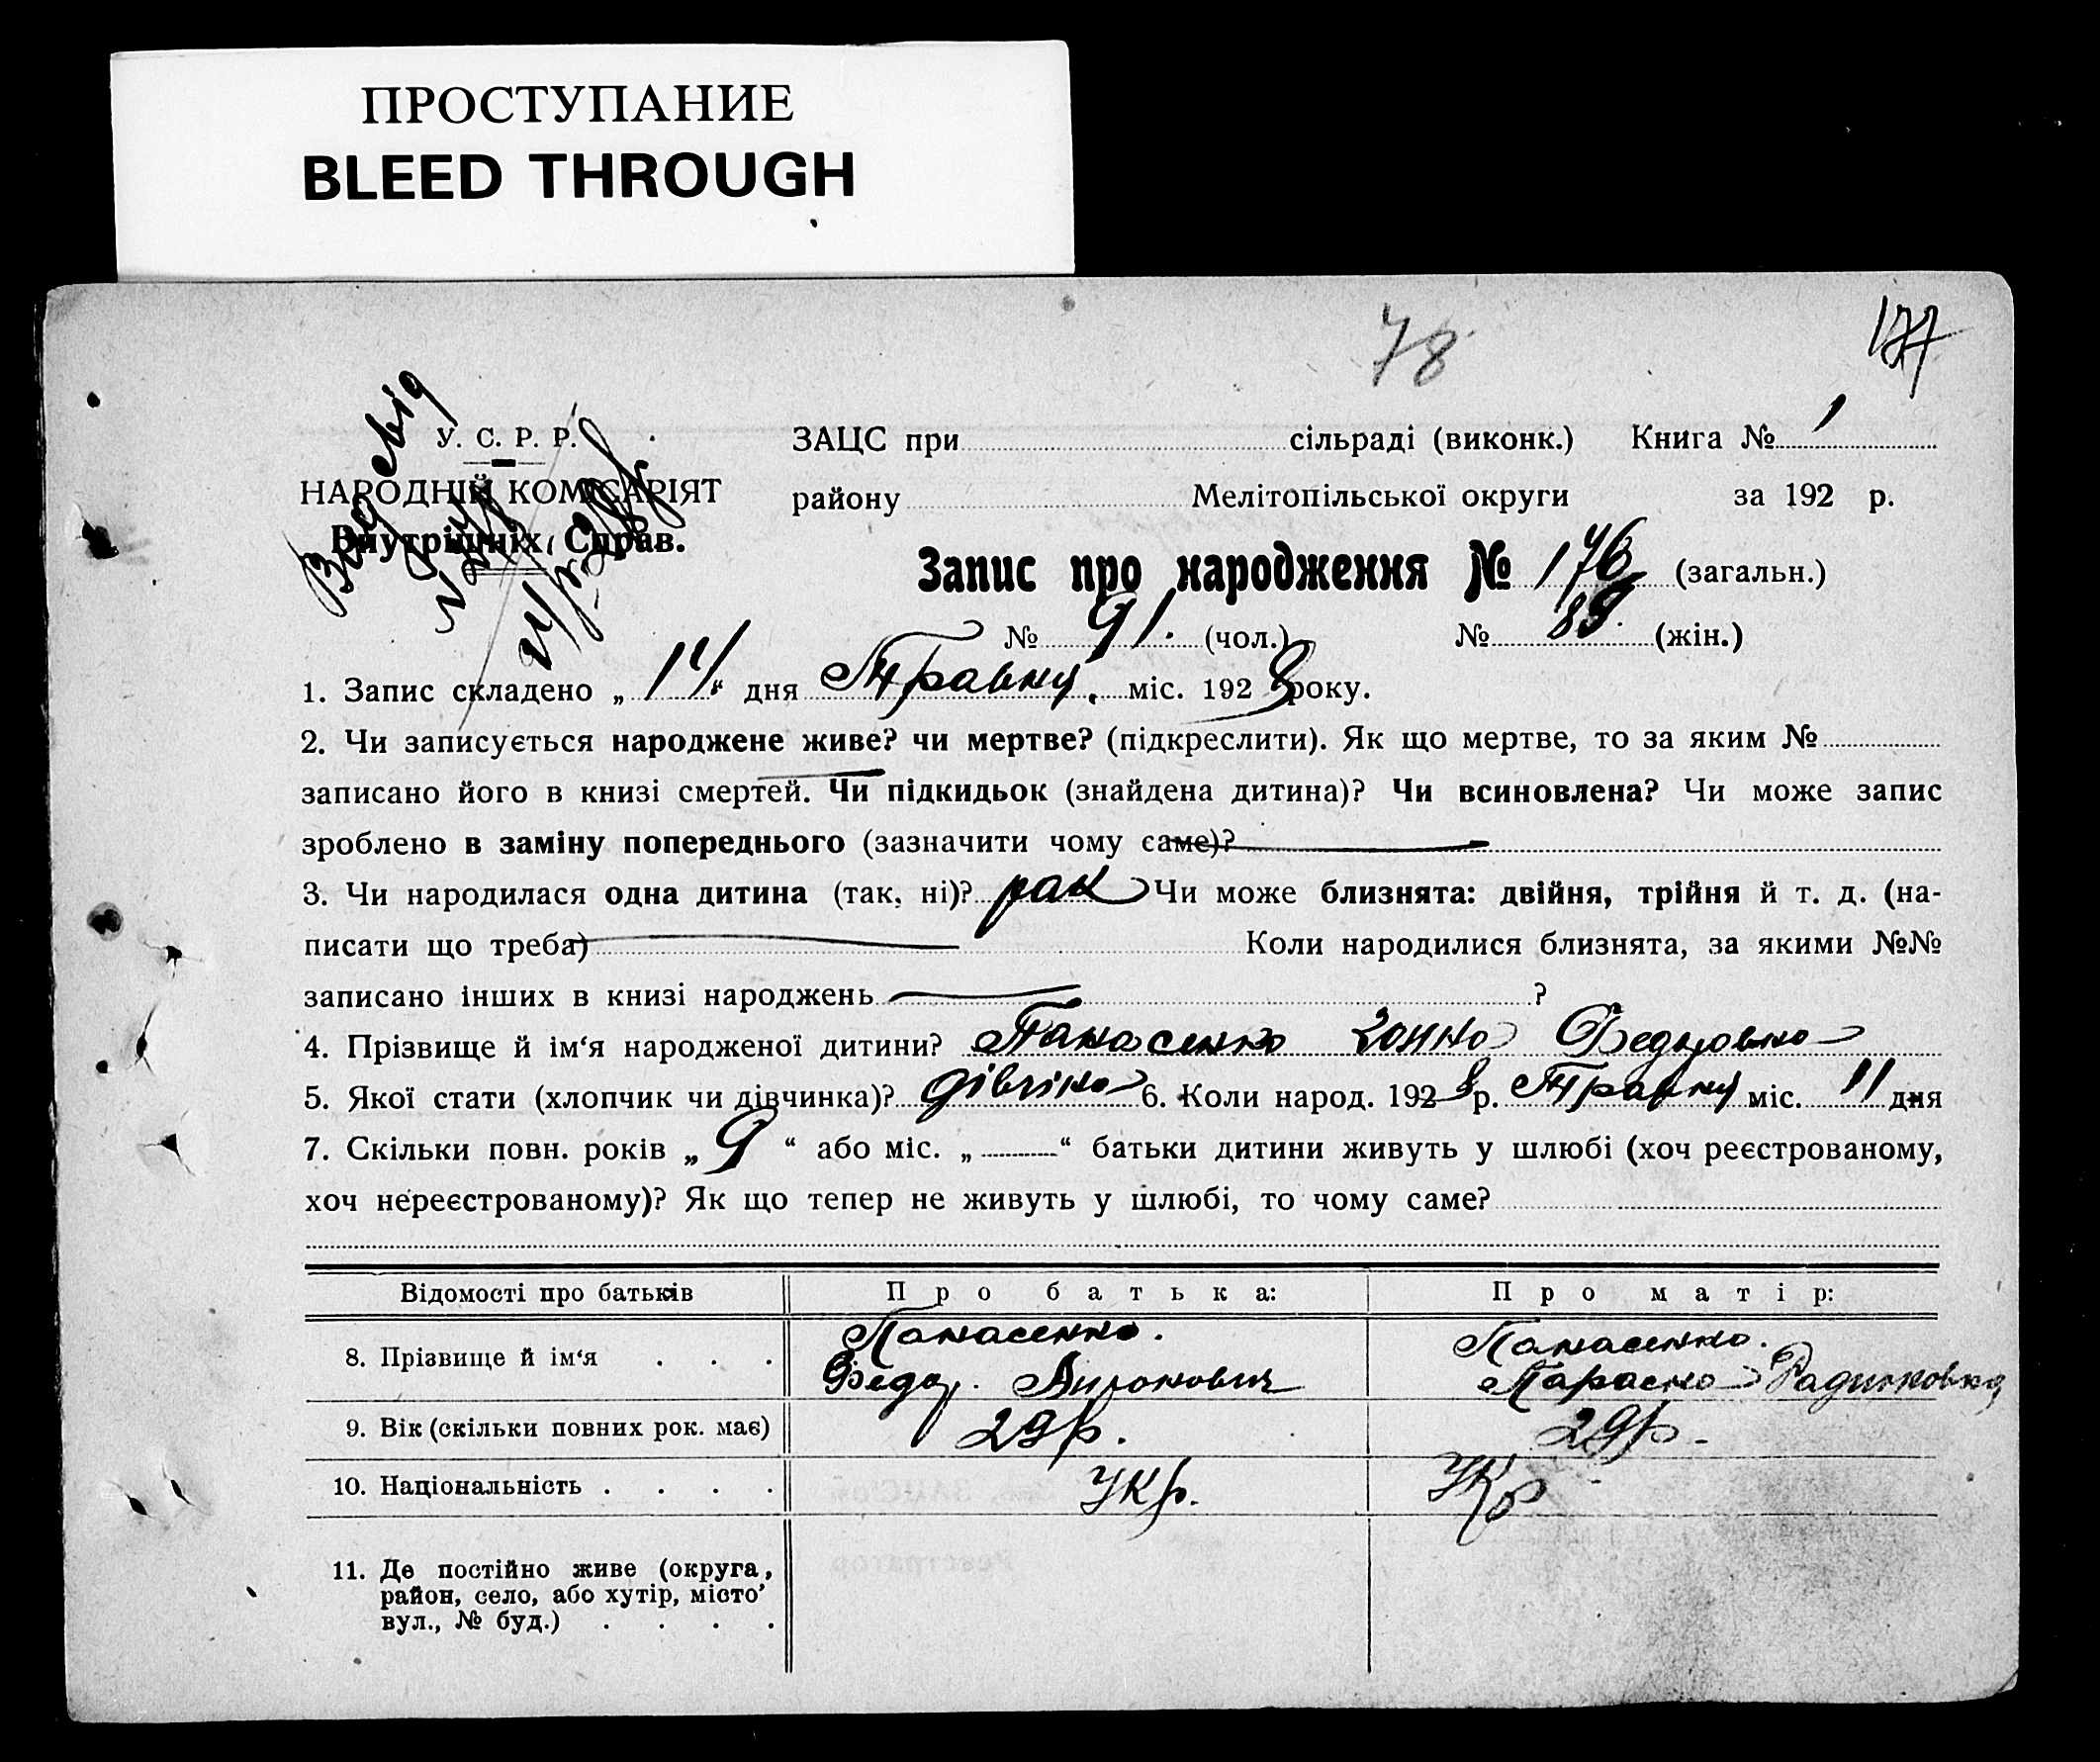 ПРОСТУПАНИЕ
BLEED THROUGH
78
177
У. С. Р. Р.
НАРОДНІЙ КОМІСАРІЯТ
Внутрішніх Справ.
ЗАЦС при сільраді (виконк.) Книга № 1
району Мелітопільської округи за 192 р.
Запис про народження № 176 (загальн.)
№ 91. (чол.) № 89. (жін.)
1. Запис складено „ 14 “ дня Травня. міс. 192 8 року.
2. Чи записується народжене живе? чи мертве? (підкреслити). Як що мертве, то за яким №
записано його в книзі смертей. Чи підкидьок (знайдена дитина)? Чи всиновлена? Чи може запис
зроблено в заміну попереднього (зазначити чому саме)?
3. Чи народилася одна дитина (так, ні)? Чи може близнята: двійня, трійня й т. д. (на-
писати що треба) Коли народилися близнята, за якими №№
записано інших в книзі народжень ?
4. Прізвище й ім‘я народженої дитини? Панасенко
5. Якої стати (хлопчик чи дівчинка)? дівчіна 6. Коли народ. 192 8 р. Травня міс. 11 дня
7. Скільки повн. років „ 9 “ або міс. „ “ батьки дитини живуть у шлюбі (хоч реєстрованому,
хоч нереєстрованому)? Як що тепер не живуть у шлюбі, то чому саме?
Відомості про батьків Про батька: Про матір:
8. Прізвище й ім‘я . . . Панасенко. Панасенко.
Федор. Параска
9. Вік (скільки повних рок. має) 29 р. 29 р.
10. Національність . . . . Укр. Укр
11. Де постійно живе (округа,
район, село, або хутір, місто’
вул., № буд.) . . . .